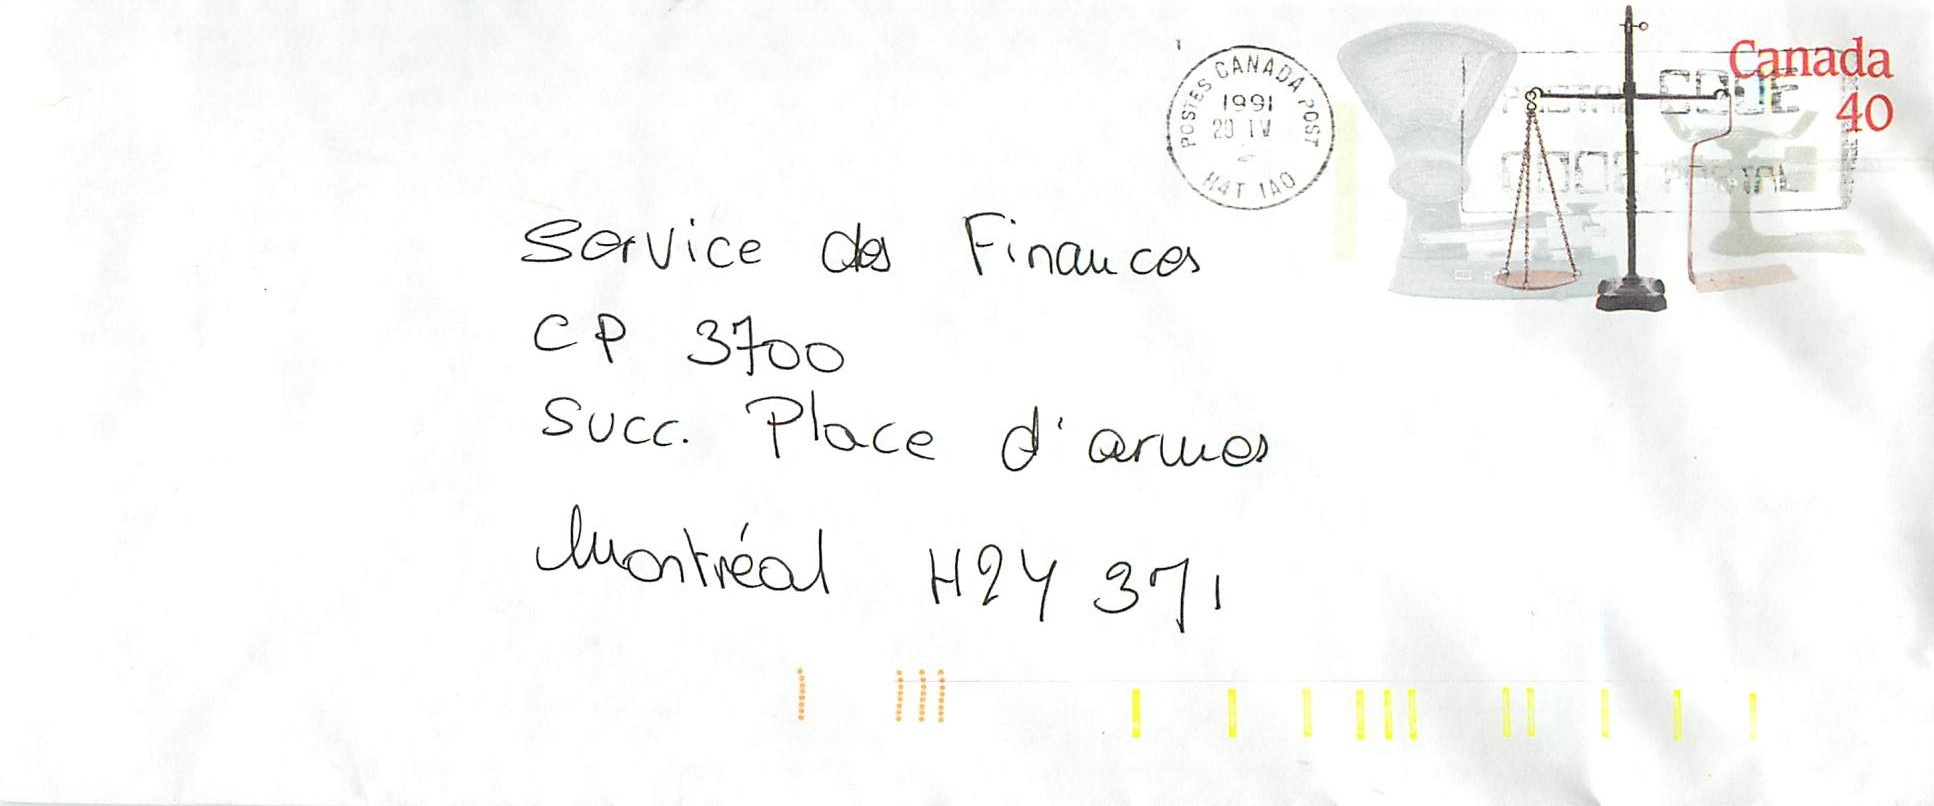 Canada
40
POSTES CANADA POST
1991
29 IV
H4T 1A0
POSTAL CODE
CODE POSTAL
Service des Finances
CP 3700
Succ. Place d'armes
Montréal H2Y 371